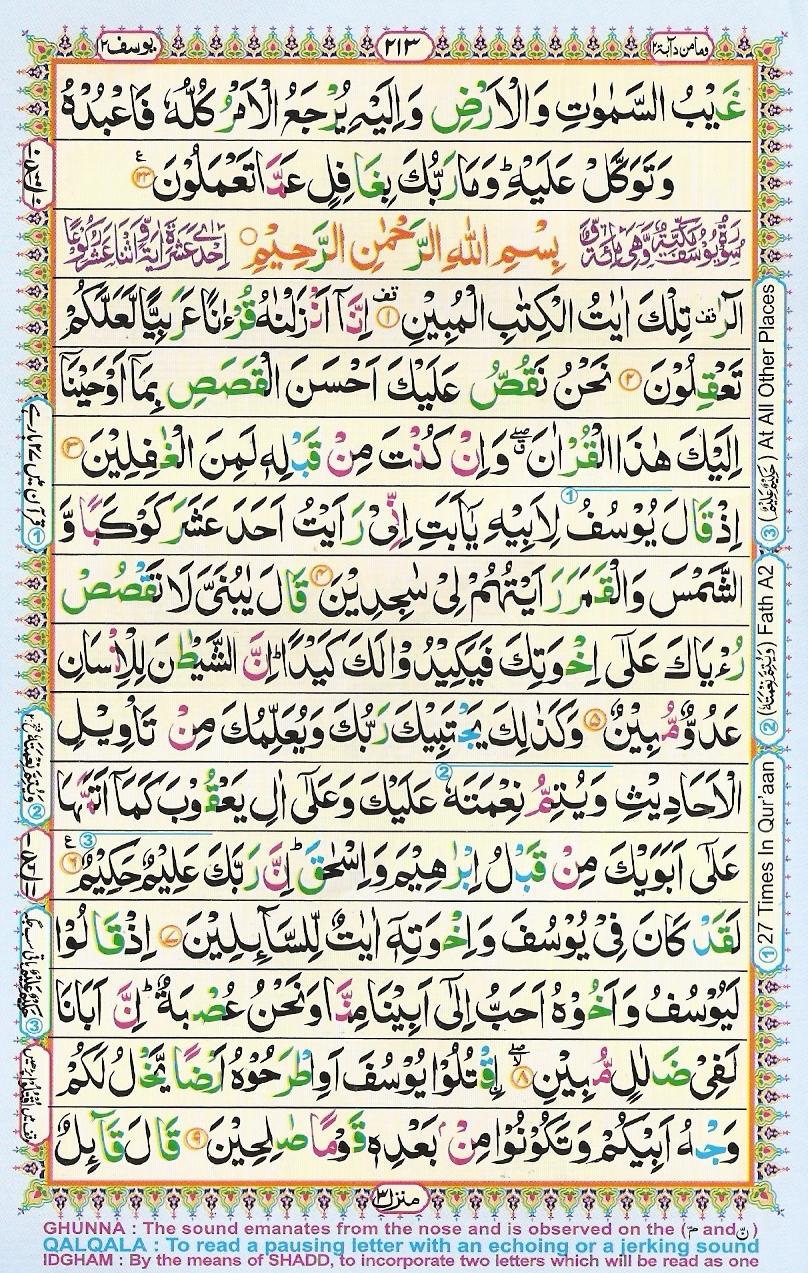 وما من دآبة ۱۲
۲۱۳
یوسف ۱۲
غَيْبُ السَّمٰوٰتِ وَالْاَرْضِ وَاِلَيْهِ يُرْجَعُ الْاَمْرُ كُلُّهٗ فَاعْبُدْهُ
وَتَوَكَّلْ عَلَيْهِ ؕ وَمَا رَبُّكَ بِغَافِلٍ عَمَّا تَعْمَلُوْنَ ۱۲۳
سُوْرَةُ يُوْسُفَ مَكِّيَّةٌ وَّهِىَ مِائَةٌ وَّ بِسْمِ اللّٰهِ الرَّحْمٰنِ الرَّحِيْمِ اِحْدٰى عَشَرَةَ اٰيَةً وَّاثْنَا عَشَرَ رُكُوْعًا
الٓرٰ ۛ قف تِلْكَ اٰيٰتُ الْكِتٰبِ الْمُبِيْنِ ۱ قف اِنَّاۤ اَنْزَلْنٰهُ قُرْءٰنًا عَرَبِيًّا لَّعَلَّكُمْ
تَعْقِلُوْنَ ۲ نَحْنُ نَقُصُّ عَلَيْكَ اَحْسَنَ الْقَصَصِ بِمَاۤ اَوْحَيْنَاۤ
اِلَيْكَ هٰذَا الْقُرْاٰنَ ۖ وَاِنْ كُنْتَ مِنْ قَبْلِهٖ لَمِنَ الْغٰفِلِيْنَ ۳
اِذْ قَالَ يُوْسُفُ لِاَبِيْهِ يٰۤاَبَتِ اِنِّىْ رَاَيْتُ اَحَدَ عَشَرَ كَوْكَبًا وَّ
الشَّمْسَ وَالْقَمَرَ رَاَيْتُهُمْ لِىْ سٰجِدِيْنَ ۴ قَالَ يٰبُنَىَّ لَا تَقْصُصْ
رُءْيَاكَ عَلٰۤى اِخْوَتِكَ فَيَكِيْدُوْا لَكَ كَيْدًا ؕ اِنَّ الشَّيْطٰنَ لِلْاِنْسَانِ
عَدُوٌّ مُّبِيْنٌ ۵ وَكَذٰلِكَ يَجْتَبِيْكَ رَبُّكَ وَيُعَلِّمُكَ مِنْ تَاْوِيْلِ
الْاَحَادِيْثِ وَيُتِمُّ نِعْمَتَهٗ عَلَيْكَ وَعَلٰۤى اٰلِ يَعْقُوْبَ كَمَاۤ اَتَمَّهَا
عَلٰۤى اَبَوَيْكَ مِنْ قَبْلُ اِبْرٰهِيْمَ وَاِسْحٰقَ ؕ اِنَّ رَبَّكَ عَلِيْمٌ حَكِيْمٌ ۶
لَقَدْ كَانَ فِىْ يُوْسُفَ وَاِخْوَتِهٖۤ اٰيٰتٌ لِّلسَّآئِلِيْنَ ۷ اِذْ قَالُوْا
لَيُوْسُفُ وَاَخُوْهُ اَحَبُّ اِلٰۤى اَبِيْنَا مِنَّا وَنَحْنُ عُصْبَةٌ ؕ اِنَّ اَبَانَا
لَفِىْ ضَلٰلٍ مُّبِيْنِ ۨ ۸ ۖ اقْتُلُوْا يُوْسُفَ اَوِ اطْرَحُوْهُ اَرْضًا يَّخْلُ لَكُمْ
وَجْهُ اَبِيْكُمْ وَتَكُوْنُوْا مِنْۢ بَعْدِهٖ قَوْمًا صٰلِحِيْنَ ۹ قَالَ قَآئِلٌ
منزل ۳
③ (حَكِيْمٌ عَلِيْمٌ) At All Other Places
② (وَيُتِمَّ نِعْمَتَهٗ) Fath A2
① 27 Times In Qur'aan
GHUNNA : The sound emanates from the nose and is observed on the (مّ and نّ)
QALQALA : To read a pausing letter with an echoing or a jerking sound
IDGHAM : By the means of SHADD, to incorporate two letters which will be read as one